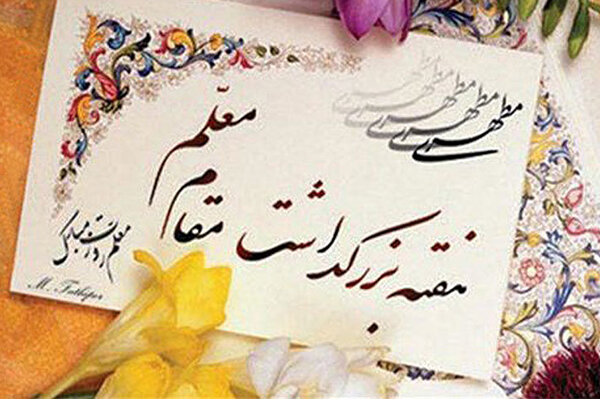 مطهری
مطهری
مطهری
مطهری
مطهری
هفته بزرگداشت
مقام معلّم
معلم روزت مبارک
M. Fathipor